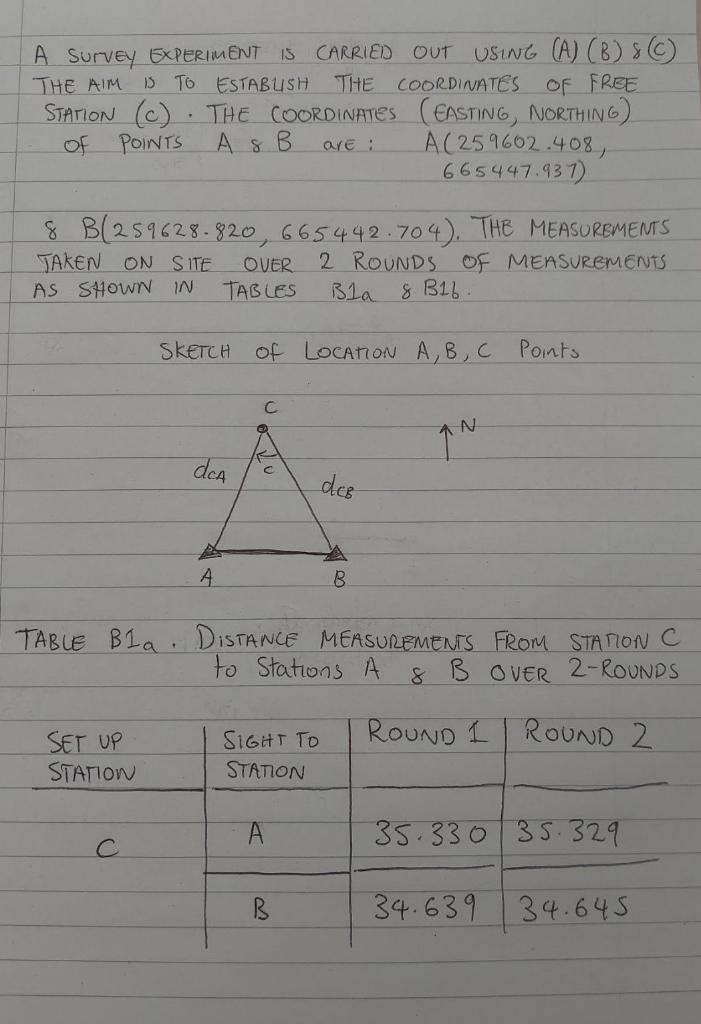 A SURVEY EXPERIMENT IS CARRIED OUT USING (A) (B) & (C)
THE AIM IS TO ESTABLISH THE COORDINATES OF FREE
STATION (C). THE COORDINATES (EASTING, NORTHING)
OF POINTS A & B are: A(259602.408,
665447.937)
& B(259628.820, 665442.704). THE MEASUREMENTS
TAKEN ON SITE OVER 2 ROUNDS OF MEASUREMENTS
AS SHOWN IN TABLES B1a & B1b.
SKETCH OF LOCATION A, B, C Points
C
N
dCA
c
dCB
A B
TABLE B1a. DISTANCE MEASUREMENTS FROM STATION C
to Stations A & B OVER 2-ROUNDS
SET UP STATION
SIGHT TO STATION
ROUND 1
ROUND 2
C
A 35.330 35.329
B 34.639 34.645